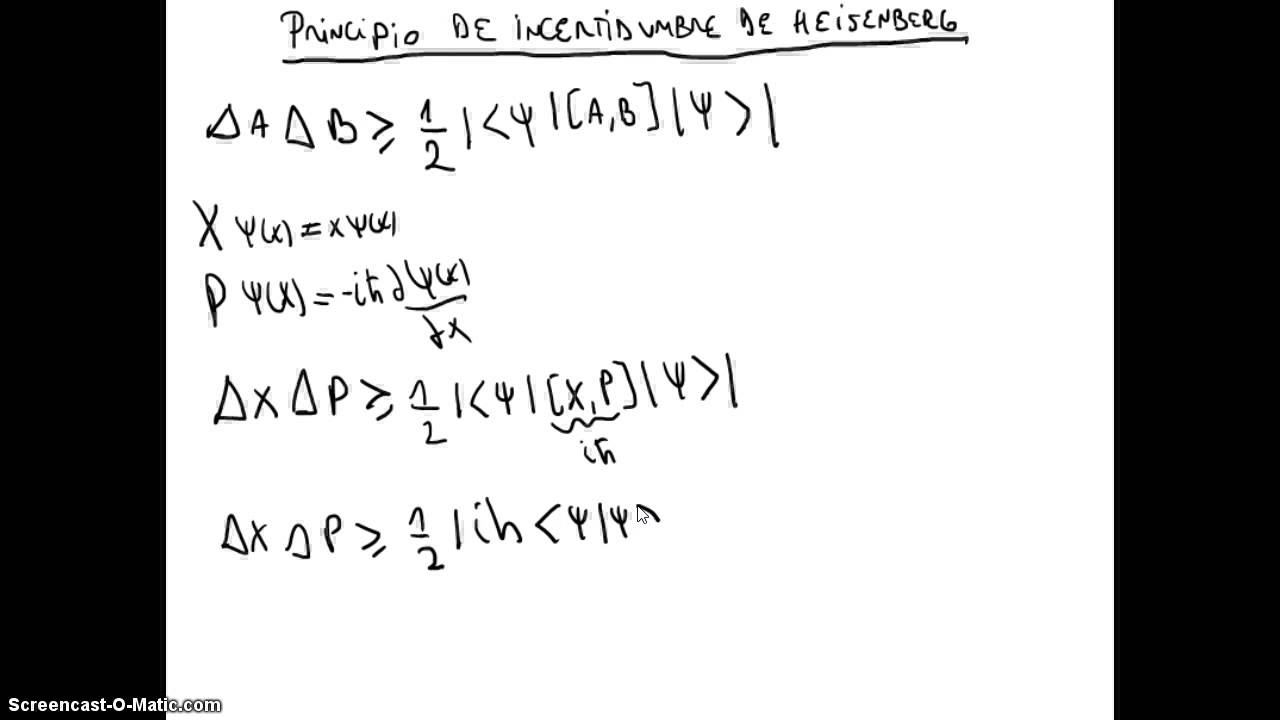 PRINCIPIO DE INCERTIDUMBRE DE HEISENBERG
ΔA ΔB ≥ 1/2 |<ψ|[A,B]|ψ>|
X ψ(x) = x ψ(x)
P ψ(x) = -iħ ∂ψ(x)/∂x
ΔX ΔP ≥ 1/2 |<ψ|[X,P]|ψ>|
iħ
ΔX ΔP ≥ 1/2 |iħ <ψ|ψ>
Screencast-O-Matic.com